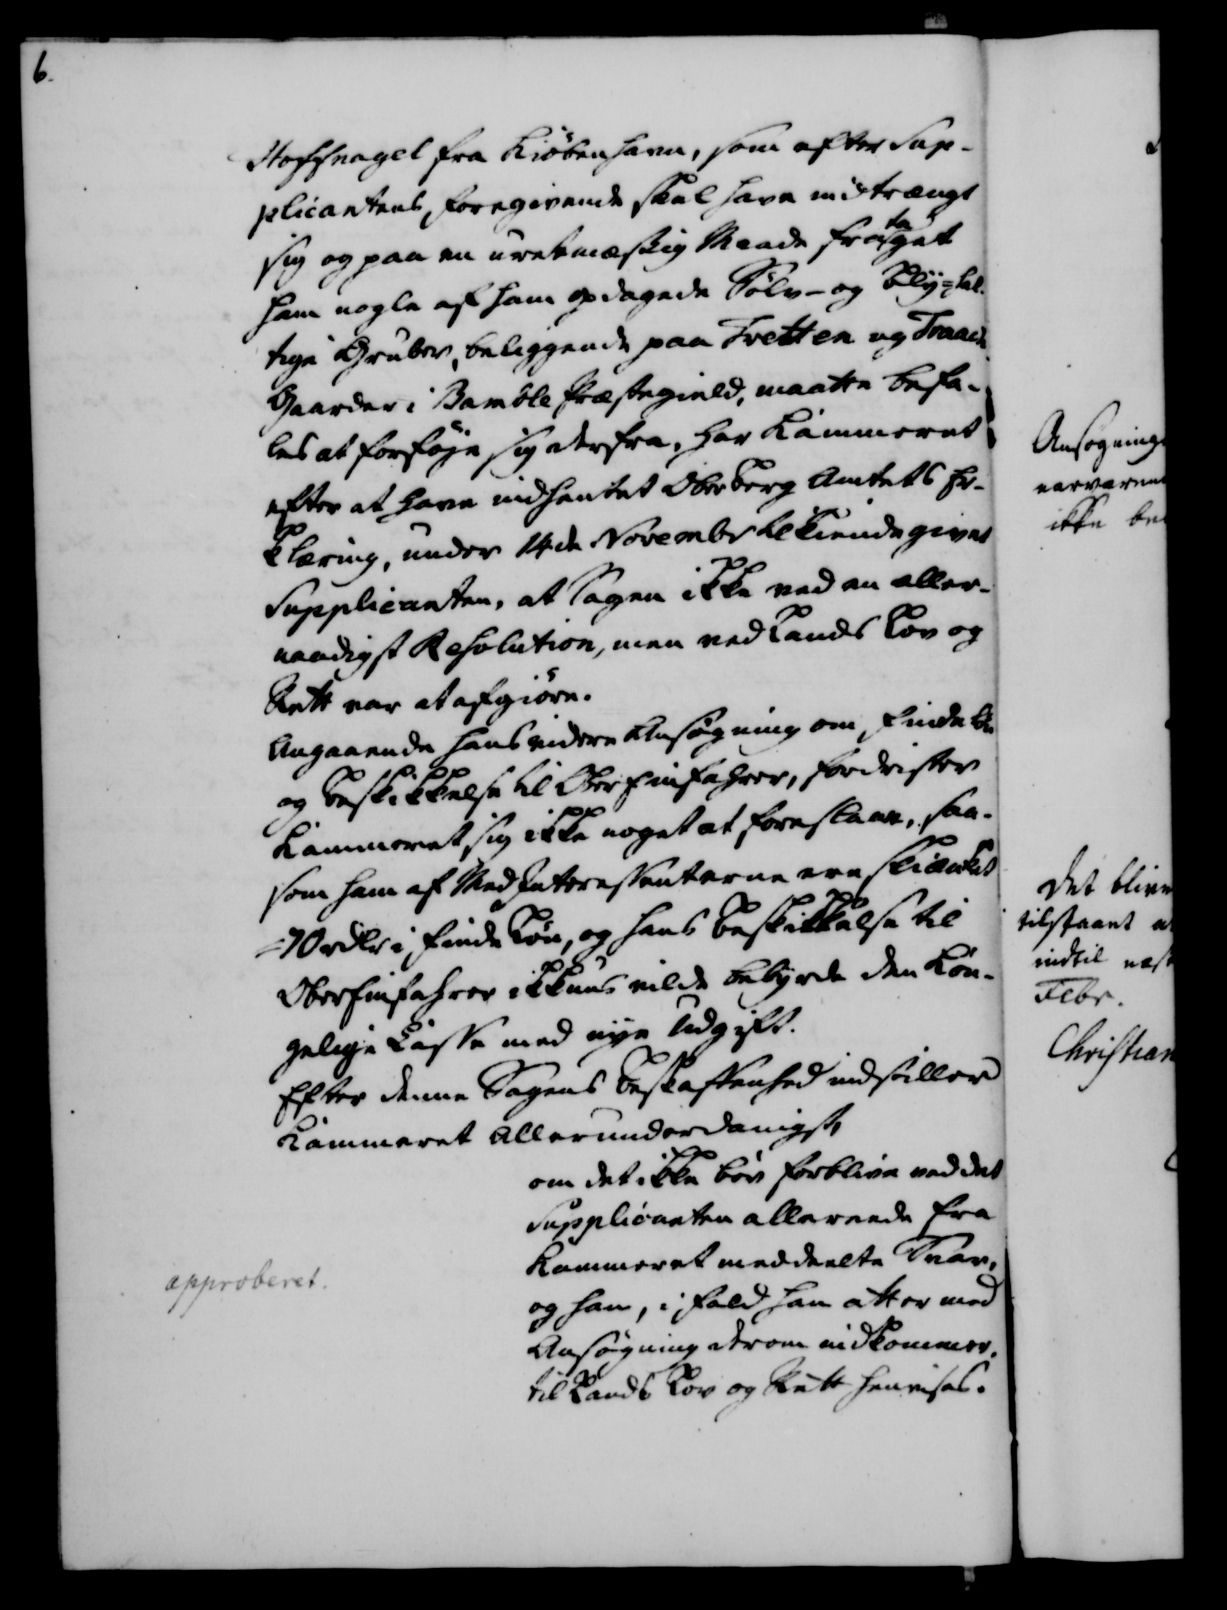 6.
Hoffnagel fra Kiöbenhavn, som efter Sup-
plicantens foregivende skal have indtrængt
sig og paa en uretmæssig Maade fra taget
ham nogle af ham opdagede Sölv- og Blÿ-hol-
tige Gruber, beliggende paa Fretten og Traack
Gaarder i Bamble Præstegield, maatte befa-
les at forföje sig derfra, har Kammeret
efter at have indhentet Ober Berg Amtets Er-
klæring, under 14de Novembr bekiendtgivet
Supplicanten, at Sagen ikke ved en aller-
naadigst Resolution, men ved Lands Lov og
Rett var at afgiöre.
Angaaende hans videre Ansögning om Finde Lön
og Beskikkelse til Oberfinfahrer, fordrister
Kammeret sig ikke noget at foreslaae, saa-
som ham af Med Interessenterne ere skienket
70 rdlr i Finde Lön, og hans Beskikkelse til
Oberfinfahrer ikkuns vilde bebyrde den Kon-
gelige Casse med nye Udgift.
Efter denne Sagens Beskaffenhed indstiller
Kammeret Allerunderdanigst,
om det ikke bör forblive ved det
Supplicanten allereede fra
Kammeret meddeelte Svar,
og han, i fald han atter med
Ansögning derom indkommer,
til Lands Lov og Rett henvises.
approberet.
Ansögning
nærværen
ikke be
Det blive
tilstaaet a
indtil næst
Febr.
Christian